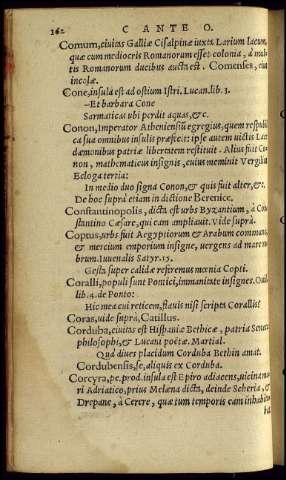 162 C A N T E O.
Comum, ciuitas Galliæ Cisalpinæ iuxta Larium lacum,
quæ cum mediocris Romanorum esset colonia, à multis
Romanorum ducibus aucta est. Comenses, eius
incolæ.
Cone, insula est ad ostium Istri. Lucan. lib. 3.
–Et barbara Cone
Sarmaticas ubi perdit aquas, &c.
Conon, Imperator Atheniensiũ egregius, quem respubli
ca sua omnibus insulis præfecit: ipse autem uictis Lace
dæmonibus patriæ libertatem restituit. Alius fuit Co-
non, mathematicus insignis, cuius meminit Vergilius
Ecloga tertia:
In medio duo signa Conon, & quis fuit alter, &c.
De hoc supra etiam in dictione Berenice.
Constantinopolis, dicta est urbs Byzantium, à Con
stantino Cæsare, qui eam ampliauit. Vide supra.
Coptus, urbs fuit Aegyptiorum & Arabum commune
& mercium emporium insigne, uergens ad mare ru
brum. Iuuenalis Satyr. 15.
Gesta super calidæ referenus mœnia Copti.
Coralli, populi sunt Pontici, immanitate insignes. Ouid.
lib. 4. de Ponto:
Hic mea cui recitem, flauis nisi scripta Corallis?
Coras, uide supra, Catillus.
Corduba, ciuitas est Hispaniæ Bethicæ, patria Senecæ
philosophi, & Lucani poëtæ. Martial.
Quà diues placidum Corduba Bethin amat.
Cordubensis, se, aliquis ex Corduba.
Corcyra, pe. prod. insula est Epiro adiacens, uicina ma
ri Adriatico, prius Melæna dicta, deinde Scheria, &
Drepane, à Cerere, quæ tum temporis eam inhabita
bat